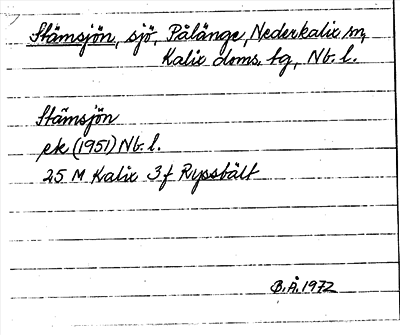 Stämsjön, sjö, Pålänge, Nederkalix sn,
Kalix doms. tg, Nb. l.
Stämsjön
ek (1951) Nb. l.
25 M Kalix 3f Ryssbält
B.Å. 1972